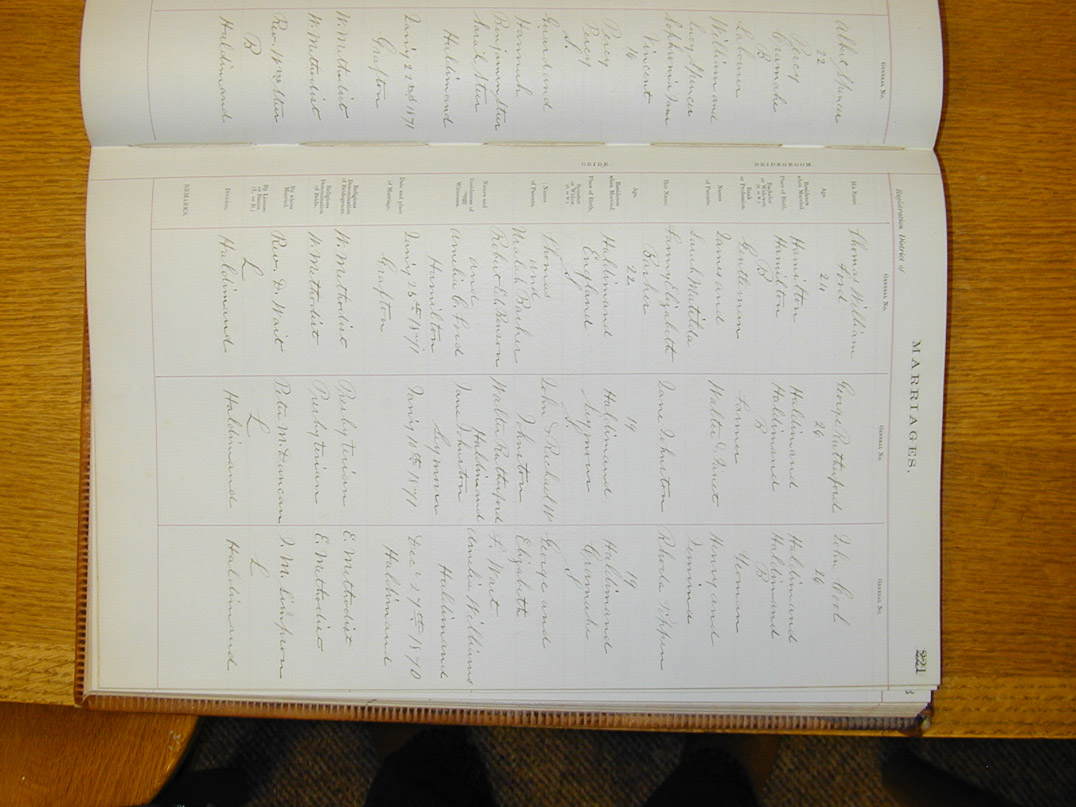 MARRIAGES.
221
Registration District of
GENERAL No.
GENERAL No.
GENERAL No.
GENERAL No.
BRIDEGROOM.
His Name
Age
Residence when Married
Place of Birth
Bachelor or Widower (B. or W.)
Rank or Profession
Names of Parents
BRIDE.
Her Name
Age
Residence when Married
Place of Birth
Spinster or Widow (S. or W.)
Names of Parents
Names and Residences of Witnesses
Date and place of Marriage.
Religious Denomination of Bridegroom.
Religious Denomination of Bride.
By whom Married.
By License or Banns (L. or B.)
Division.
REMARKS.
Albert Spencer
22
Percy
Cramahe
B
Laborer
William and
Lucy Spencer
Sephronia Jane
Vincent
16
Percy
Percy
S.
Hannah
Benjamin
Haldimand
Jan'y 22nd 1871
Grafton
W. Methodist
W. Methodist
B
Haldimand
Thomas William
Ford
24
Hamilton
Hamilton
B
Gentleman
James and
Sarah Matilda
Fanny Elizabeth
22
Haldimand
England
S
Thomas
and
and
Amelia C. Ford
Hamilton
Jan'y 25th 1871
Grafton
W. Methodist
W. Methodist
Rev. D. Wait
L
Haldimand
George Rutherford
26
Haldimand
Haldimand
B
Farmer
Walter & Janet
Jane Johnston
19
Haldimand
Seymour
S.
John & Rachel
Johnston
Walter Rutherford
Haldimand
Jane Johnston
Seymour
Jan'y 18th 1871
Presbyterian
Presbyterian
Peter McDuncan
L
Haldimand
John Cool
26
Haldimand
Haldimand
B
Yeoman
Henry and
Jemima
Rhoda
19
Haldimand
Cramahe
S
George and
Elizabeth
Haldimand
Dec 27th 1870
Haldimand
E. Methodist
E. Methodist
J. M. Simpson
L
Haldimand